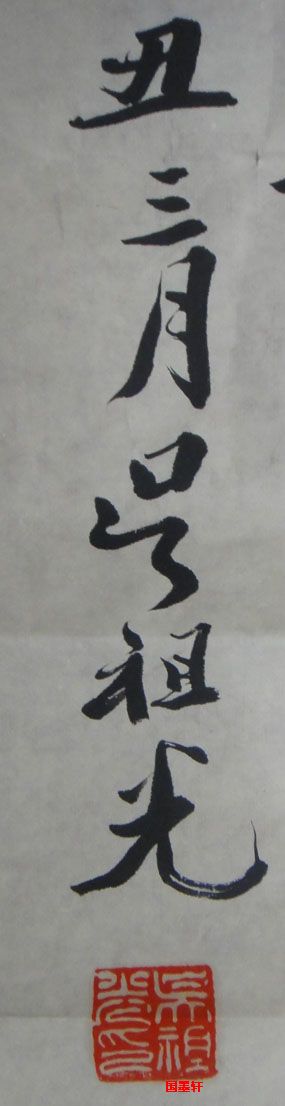 丑三月吴祖光
吴祖光印
国墨轩